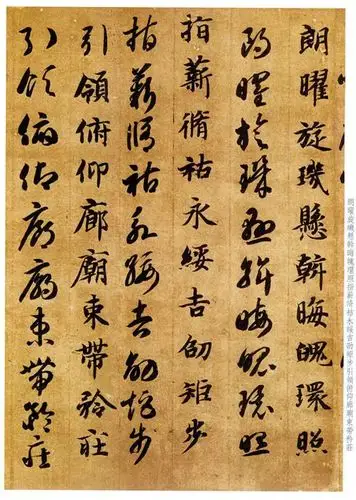 朗曜旋璣懸斡晦魄環照
朗曜旋璣懸斡晦魄環照
指薪脩祜永綏吉劭矩步
指薪脩祜永綏吉劭矩步
引領俯仰廊廟束帶矜莊
引領俯仰廊廟束帶矜莊
朗曜旋璣懸斡晦魄環照指薪脩祜永綏吉劭矩步引領俯仰廊廟束帶矜莊